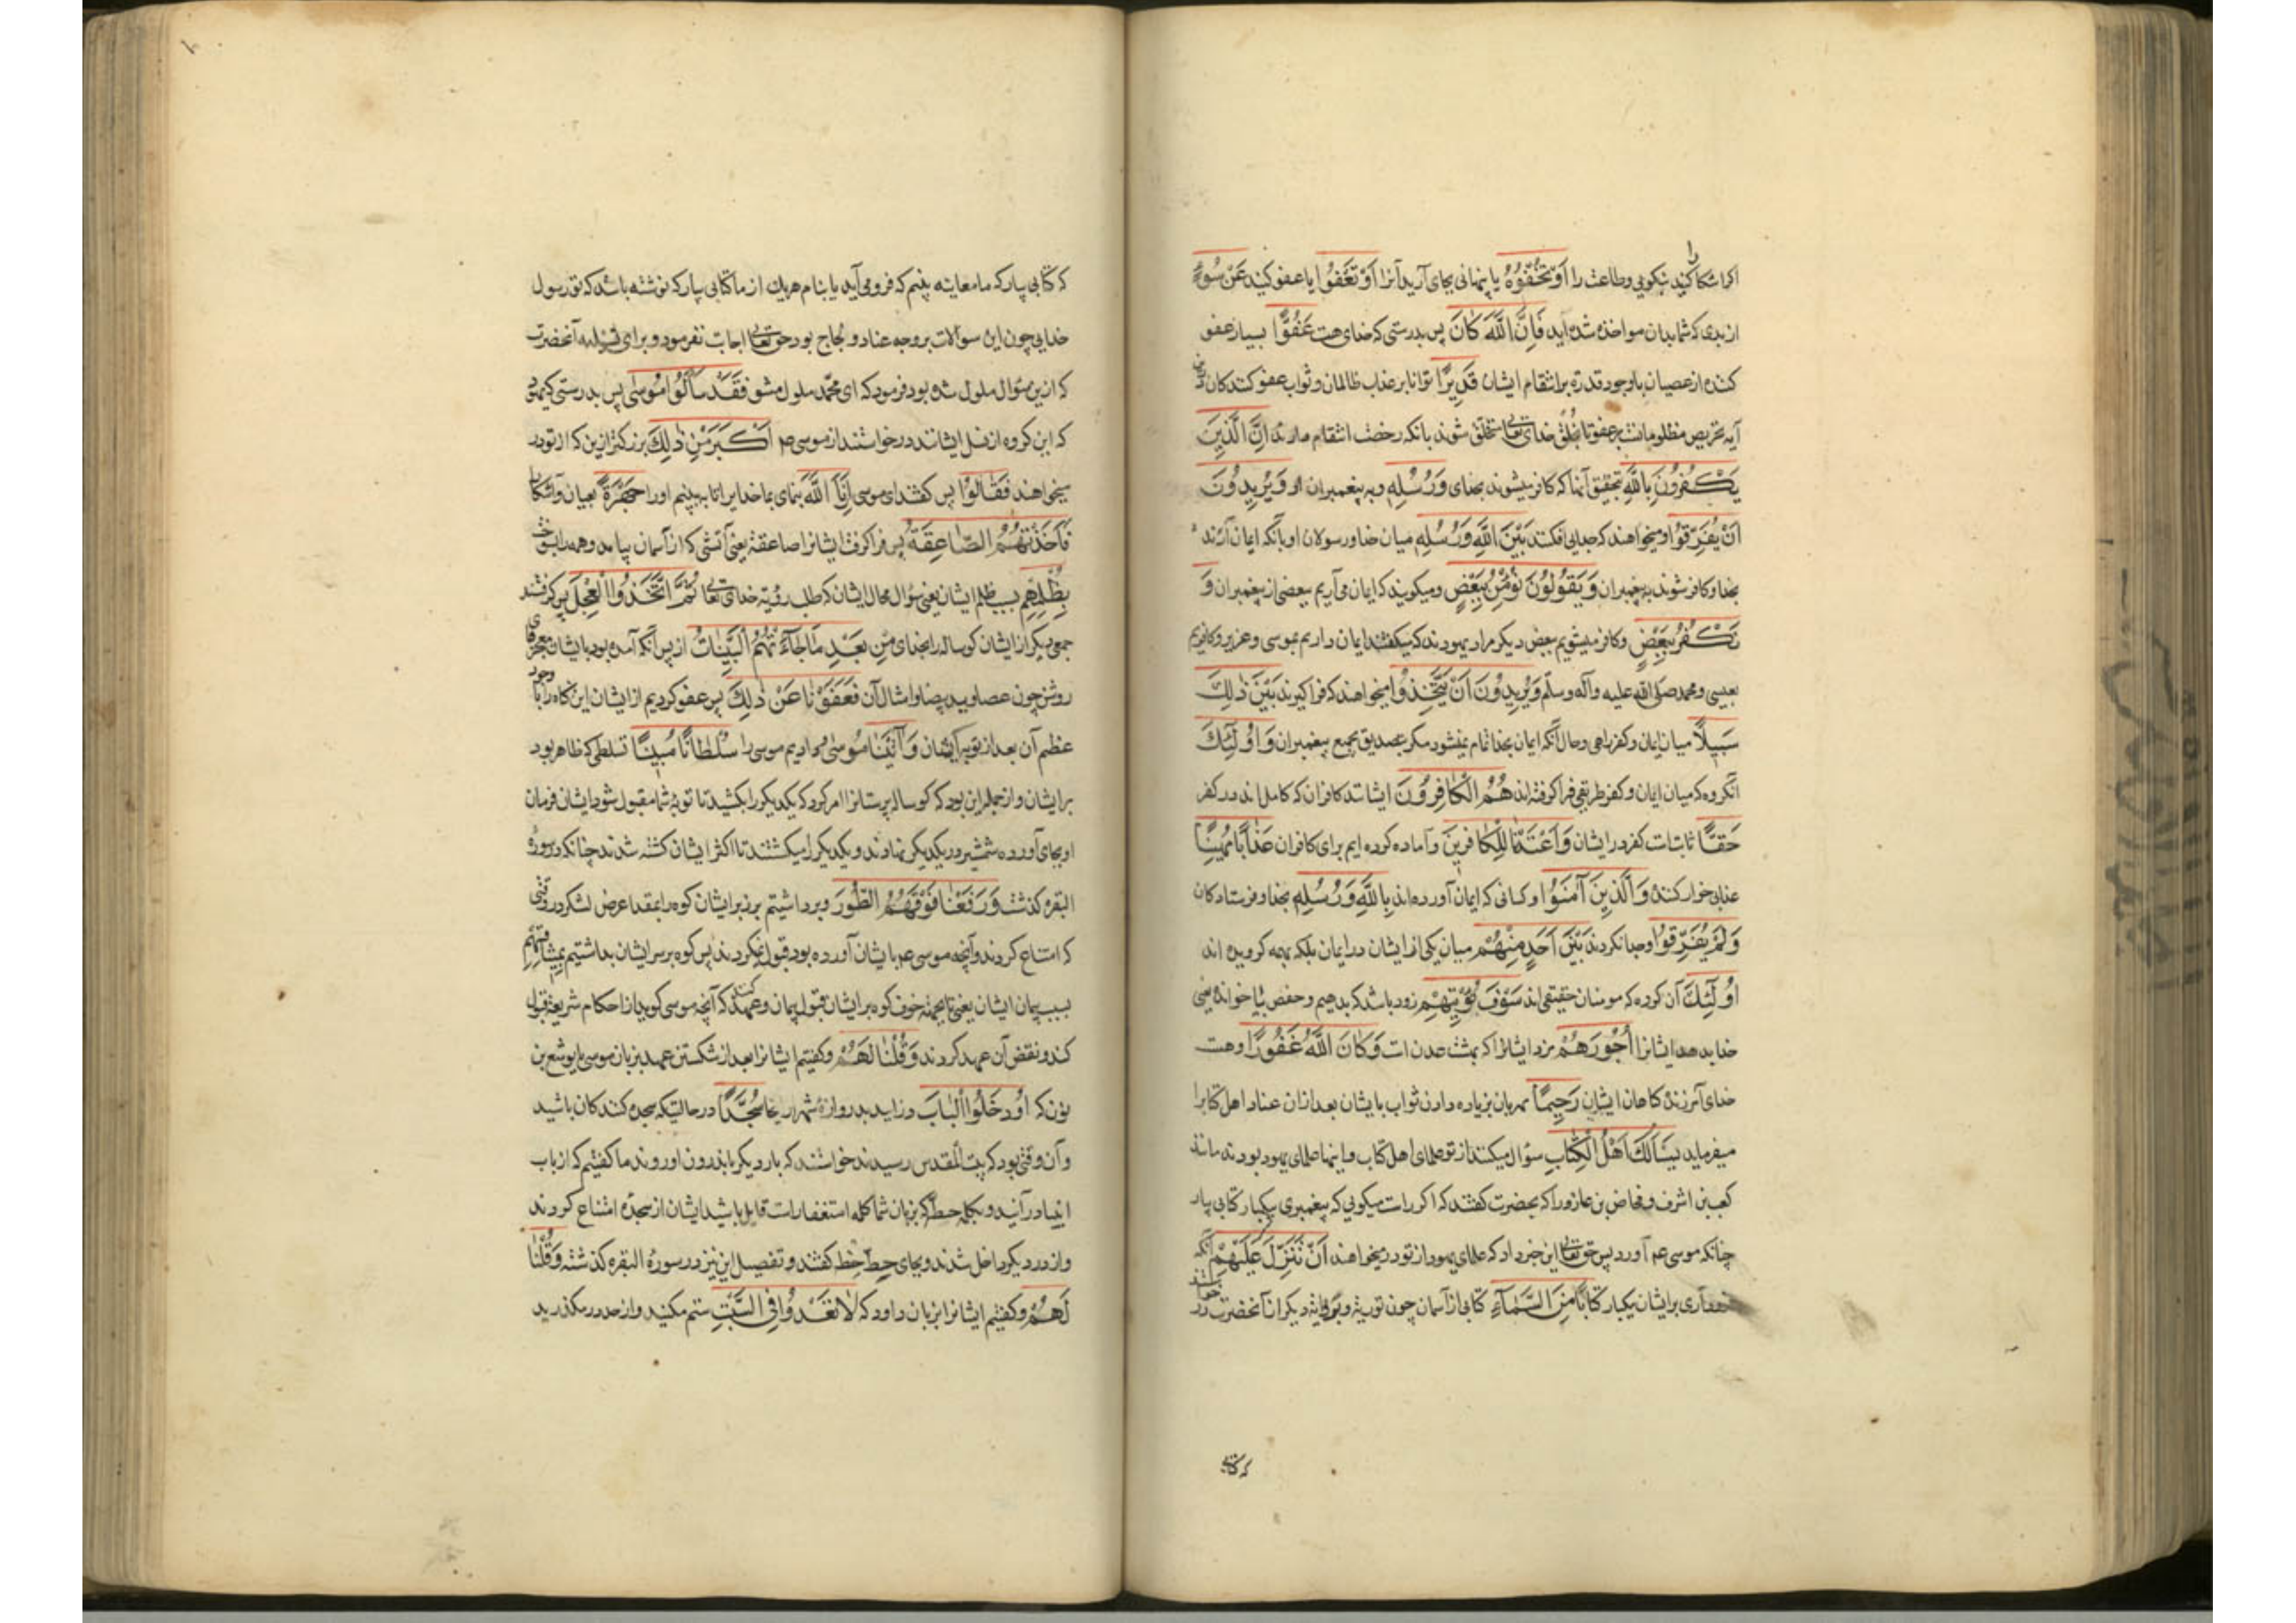 اکر اشکارا کنید نیکویی و طاعت را اَوْ تُخْفُوهُ یا پنهانی بجای آرید آنرا اَوْ تَعْفُوا یا عفو کنید عَنْ سُوءٍ
از بدی که شما بدان مواخذه شده آید فَاِنَّ اللّٰهَ کَانَ پس بدرستی که خدای هست عَفُوًّا بسیار عفو
کننده از عصیان با وجود قدرة بر انتقام ایشان قَدِیرًا توانا بر عذاب ظالمان و ثواب عفو کنندکان درین
آیه تحریص مظلومانست بر عفو تا بخلق خدای تعالی متخلق شوند بانکه رخصت انتقام دارند اِنَّ الَّذِینَ
یَکْفُرُونَ بِاللّٰهِ بتحقیق آنها که کافر میشوند بخدای وَرُسُلِهِ و به پیغمبران او وَیُرِیدُونَ
اَنْ یُفَرِّقُوا و میخواهند که جدایی افکنند بَیْنَ اللّٰهِ وَرُسُلِهِ میان خدا و رسولان او بآنکه ایمان آرند
بخدا و کافر شوند به پیغمبران وَیَقُولُونَ نُؤْمِنُ بِبَعْضٍ و میکویند که ایمان می آریم ببعضی از پیغمبران وَ
نَکْفُرُ بِبَعْضٍ و کافر میشویم ببعض دیکر مراد یهودند که میکفتند ایمان داریم بموسی و عزیر و کافریم
بعیسی و محمد صلی الله علیه وآله وسلّم وَیُرِیدُونَ اَنْ یَتَّخِذُوا و میخواهند که فرا کیرند بَیْنَ ذٰلِکَ
سَبِیلًا میان ایمان و کفر راهی و حال آنکه ایمان بخدا تمام نمیشود مکر بتصدیق بجمیع پیغمبران وَاُولٰئِکَ
آنکروه که میان ایمان و کفر طریقی فرا کرفته اند هُمُ الْکَافِرُونَ ایشانند کافران که کامل اند در کفر
حَقًّا ثابتات کفر در ایشان وَاَعْتَدْنَا لِلْکَافِرِینَ و آماده کرده ایم برای کافران عَذَابًا مُهِینًا
عذابی خوار کننده وَالَّذِینَ آمَنُوا و کسانی که ایمان آورده اند بِاللّٰهِ وَرُسُلِهِ بخدا و فرستادکان
وَلَمْ یُفَرِّقُوا و جدا نکردند بَیْنَ اَحَدٍ مِنْهُمْ میان یکی از ایشان در ایمان بلکه بهمه کرویده اند
اُولٰئِکَ آن کروه که مومنان حقیقی اند سَوْفَ نُؤْتِیهِمْ زود باشد که بدهیم و حفص بیا خوانده یعنی
خدا بدهد ایشانرا اُجُورَهُمْ مزد ایشانرا که بهشت عدن است وَکَانَ اللّٰهُ غَفُورًا و هست
خدای آمرزنده کناهان ایشان رَحِیمًا مهربان بزیاده دادن ثواب بایشان بعد از آن عناد اهل کتابرا
میفرماید یَسْاَلُکَ اَهْلُ الْکِتَابِ سؤال میکنند از تو علمای اهل کتاب و اینها علمای یهود بودند مانند
کعب بن اشرف و فخاص بن عازورا که بحضرت کفتند که اکر راست میکویی که پیغمبری یکبار کتابی بیار
چنانکه موسی عم آورد پس حق تعالی این خبر داد که علمای یهود از تو در میخواهند اَنْ تُنَزِّلَ عَلَیْهِمْ آنکه
فرود آری بر ایشان یکبار کِتَابًا مِنَ السَّمَاءِ کتابی از آسمان چون توریة و دیکران از آنحضرت در خواستند
که کتابی
که کتابی بیار که ما معاینه بینیم که فرو می آید یا بنام هر یک از ما کتابی بیار که نوشته باشد که تو رسول
خدایی چون این سوآلات بر وجه عناد و لجاج بود حق تعالی اجابت نفرمود و برای تسلیه آنحضرت
که ازین سؤال ملول شده بود فرمود که ای محمّد ملول مشو فَقَدْ سَاَلُوا مُوسٰی پس بدرستی که یهود
که این کروه از نسل ایشانند درخواستند از موسی عم اَکْبَرَ مِنْ ذٰلِکَ بزرکتر ازین که از تو در
میخواهند فَقَالُوا پس کفتند ای موسی اَرِنَا اللّٰهَ بنمای بما خدایرا تا به بینیم او را جَهْرَةً بعیان و آشکارا
فَاَخَذَتْهُمُ الصَّاعِقَةُ پس فرا کرفت ایشانرا صاعقة یعنی آتشی که از آسمان بیامد و همه را بسوخت
بِظُلْمِهِمْ بسبب ظلم ایشان یعنی سؤال محال ایشان که طلب رؤیة خدای تعالی ثُمَّ اتَّخَذُوا الْعِجْلَ پس کرفتند
جمعی دیکر از ایشان کوساله را بخدای مِنْ بَعْدِ مَا جَاءَتْهُمُ الْبَیِّنَاتُ از پس آنکه آمده بود بایشان معجزهای
روشن چون عصا و ید بیضا و امثال آن فَعَفَوْنَا عَنْ ذٰلِکَ پس عفو کردیم از ایشان این کناه را با وجود
عظم آن بعد از توبه ایشان وَآتَیْنَا مُوسٰی و دادیم موسی را سُلْطَانًا مُبِینًا تسلطی که ظاهر بود
بر ایشان و از جمله این بود که کوساله پرستانرا امر کرد که یکدیکر را بکشید تا توبه شما مقبول شود ایشان فرمان
او بجای آورده شمشیر در یکدیکر نهادند و یکدیکر را میکشتند تا اکثر ایشان کشته شدند چنانکه در سورة
البقره کذشت وَرَفَعْنَا فَوْقَهُمُ الطُّورَ و برداشتیم بر زبر ایشان کوه را بمقدا عرض لشکر در وقتی
که امتناع کردند و آنچه موسی عم بایشان آورده بود قبول نمیکردند پس کوه بر سر ایشان بداشتیم بِمِیثَاقِهِمْ
بسبب پیمان ایشان یعنی تا بجهة خوف کوه بر ایشان قبول پیمان و عهد کنند که آنچه موسی کوید از احکام شریعة قبول
کند و نقض آن عهد کردند وَقُلْنَا لَهُمُ و کفتیم ایشانرا بعد از شکستن عهد بزبان موسی یا یوشع بن
نون که اُدْخُلُوا الْبَابَ درآیید بدروازهٔ شهر اریحا سُجَّدًا در حالتیکه سجده کنندکان باشید
و آن وقتی بود که ببیت المقدس رسیدند خواستند که بار دیکر باندرون او روند ما کفتیم که از باب
ایلیا درآئید و بکلمه حطه که بزبان شما کلمه استغفارات قایل باشید ایشان از سجده امتناع کردند
و از در دیکر داخل شدند و بجای حطه حنطه کفتند و تفصیل این نیز در سورهٔ البقره کذشته وَقُلْنَا
لَهُمْ و کفتیم ایشانرا بزبان داود که لَا تَعْدُوا فِی السَّبْتِ ستم مکنید و از حد در مکذرید